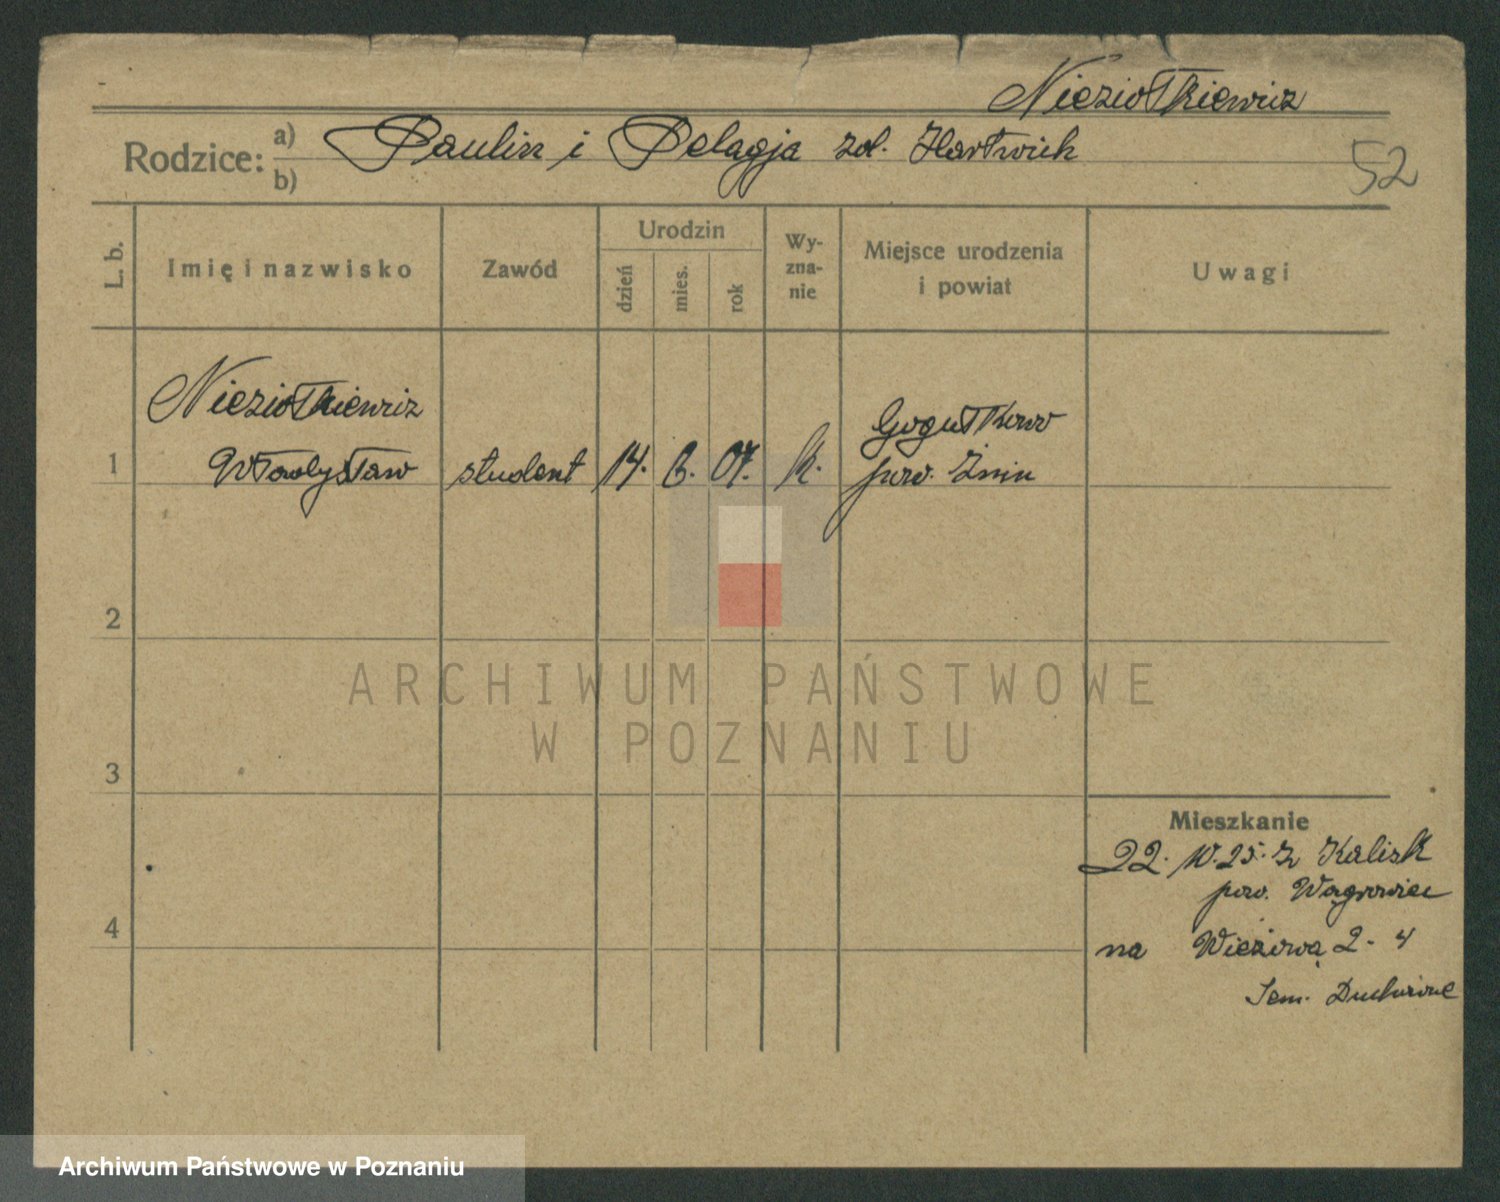 Nieziołkiewicz
Rodzice: a) Paulin i Pelagja zd. Hartwich
b)
52
L. b.
Imię i nazwisko
Zawód
Urodzin
dzień
mies.
rok
Wy-
zna-
nie
Miejsce urodzenia
i powiat
Uwagi
Nieziołkiewicz
1 Władysław student 14. 6. 07. k.
Gogułkowo
pow. Żnin
2
3
4
Mieszkanie
22. 10. 25. z Kalisk
pow. Wągrowiec
na Wieżową 2-4
Sem. Duchowne
ARCHIWUM PAŃSTWOWE
W POZNANIU
Archiwum Państwowe w Poznaniu